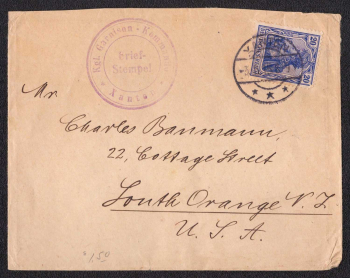 Kgl. Garnison-Kommando
Brief-
Stempel
Xanten
20
20
Mr
Charles Baumann,
22, Cottage Street
South Orange N. J.
U. S. A.